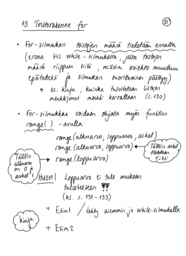 13 Toistorakenne for
For-silmukan toistojen määrä tiedetään ennalta
(erona on while-silmukkaan, jossa toistojen
määrä riippuu siitä, milloin ehdosta muodostuu
epätodeksi ja silmukan suorittaminen päättyy)
ks. kirja, kuinka tulostetaan luvun
(s. 130)
For-silmukkaa voidaan ohjata myös funktion
range() -avulla
range(alkuarvo, loppuarvo, askel)
range(alkuarvo, loppuarvo)
range(loppuarvo)
Tällöin
alkuarvo
on 0 ja
askel 1
Tällöin
askel
oletetaan
1:ksi
HUOM!
Loppuarvo ei tule mukaan
tulosteeseen !!!
(ks. s. 131-133)
Kirja
Esim1 / tehty aiemmin jo while-silmukalla
Esim2